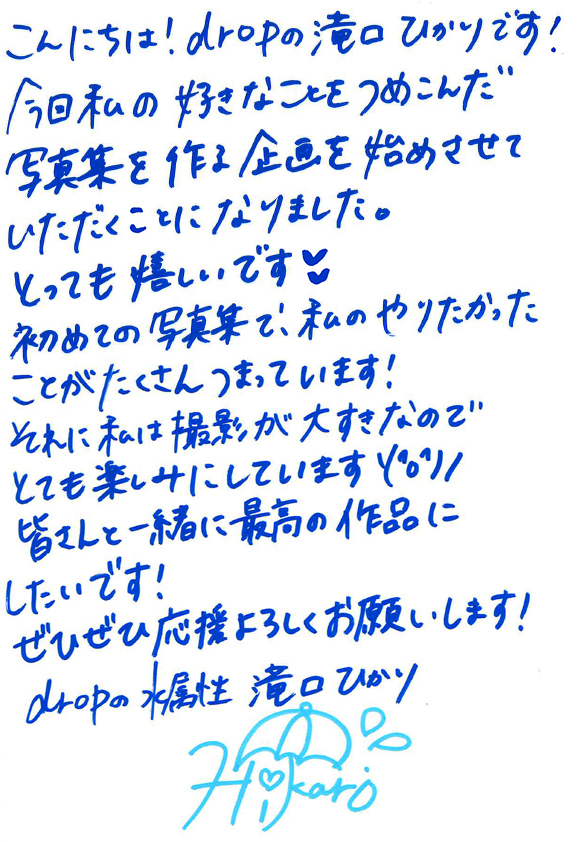 こんにちは！dropの滝口ひかりです！
今回私の好きなことをつめこんだ
写真集を作る企画を始めさせて
いただくことになりました。
とっても嬉しいです♥
初めての写真集で、私のやりたかった
ことがたくさんつまっています！
それに私は撮影が大すきなので
とても楽しみにしていますヾ(^o^)ﾉﾉ
皆さんと一緒に最高の作品に
したいです！
ぜひぜひ応援よろしくお願いします！
dropの水属性 滝口ひかり
Hikari